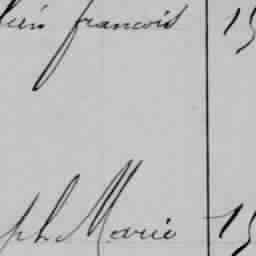 lien francois 15
ph Marie 15